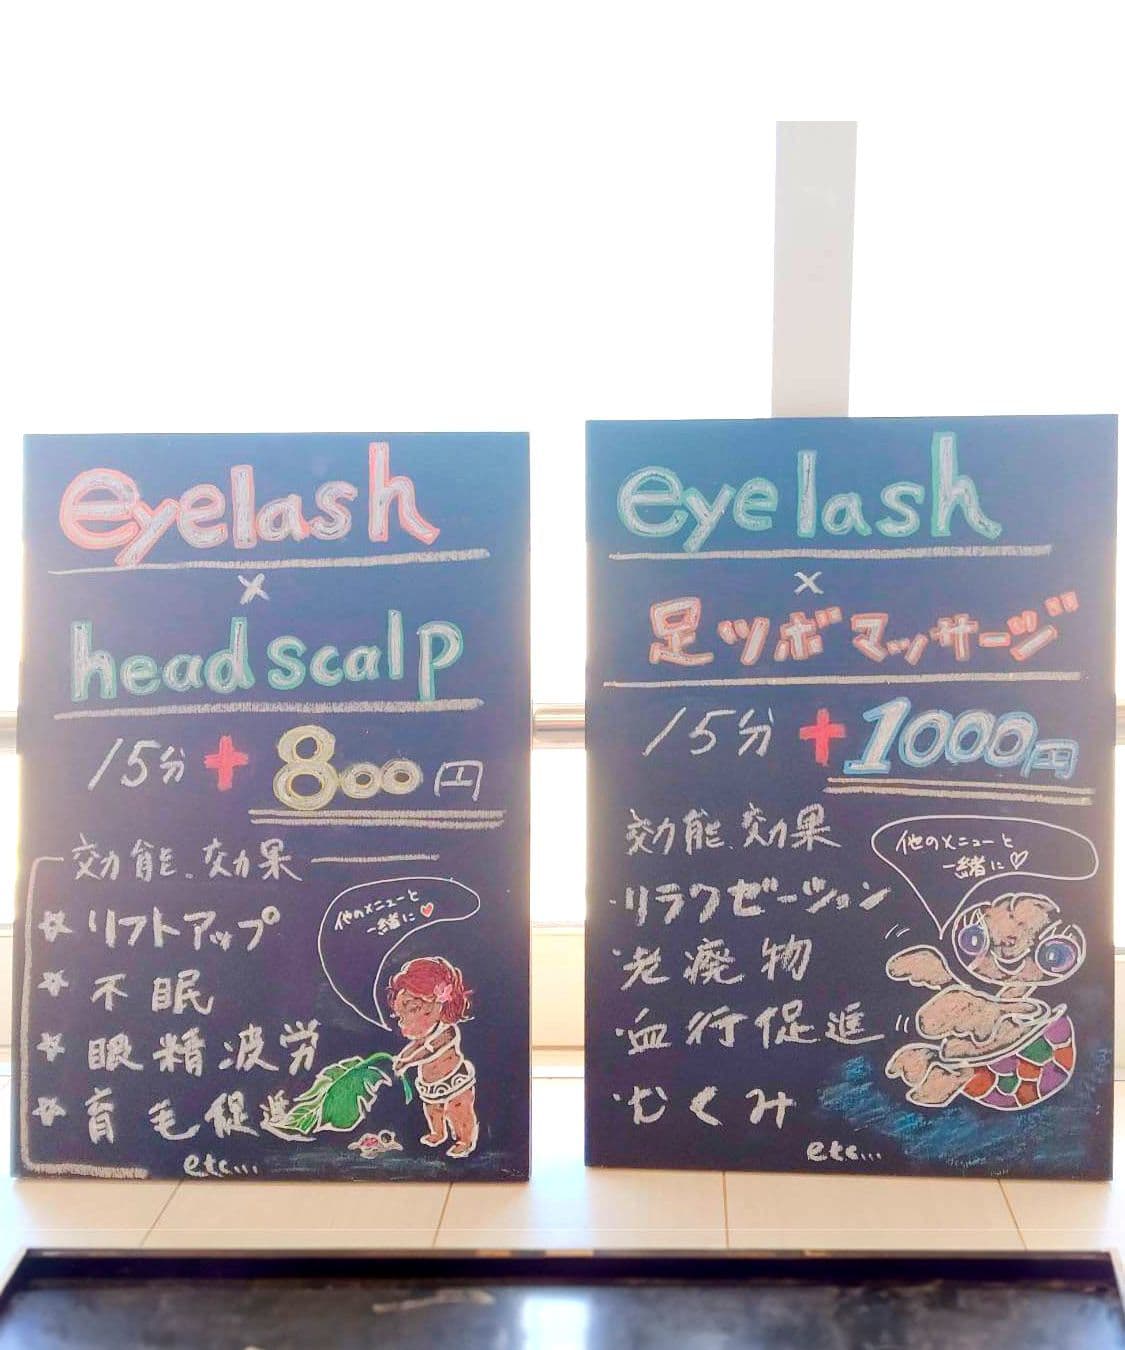 eyelash
×
head scalp
15分 + 800円
効能、効果
☆ リフトアップ
☆ 不眠
☆ 眼精疲労
☆ 育毛促進
etc...
他のメニューと
一緒に♥
eyelash
×
足ツボマッサージ
15分 + 1000円
効能、効果
・リラクゼーション
・老廃物
・血行促進
・むくみ
etc...
他のメニューと
一緒に♡